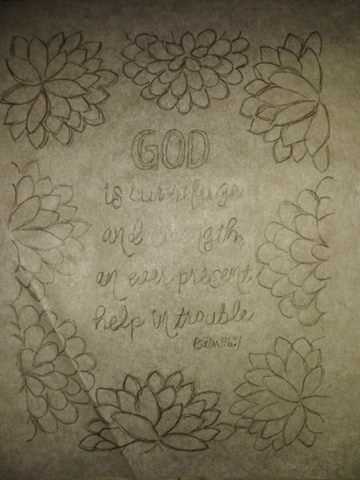 GOD
is our refuge
and strength,
an ever present
help in trouble
Psalm 46:1